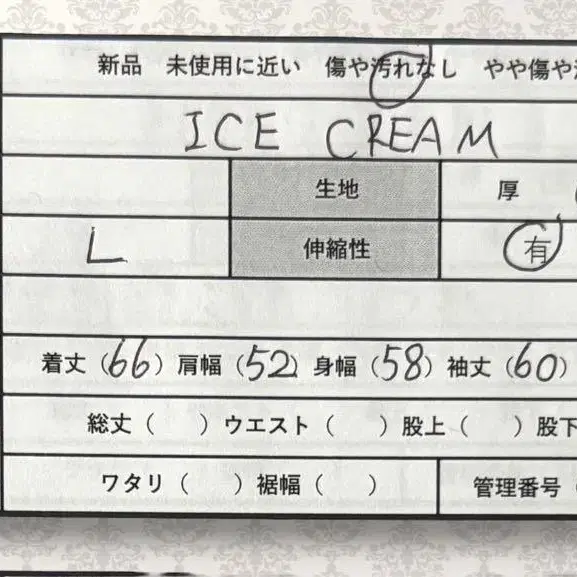 新品 未使用に近い 傷や汚れなし やや傷や
ICE CREAM
生地 厚
L 伸縮性 有
着丈（66）肩幅（52）身幅（58）袖丈（60）
総丈（ ）ウエスト（ ）股上（ ）股下
ワタリ（ ）裾幅（ ） 管理番号（